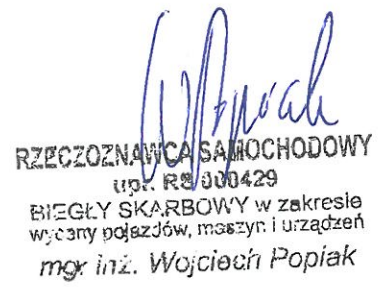 RZECZOZNAWCA SAMOCHODOWY
upr. RS 000429
BIEGŁY SKARBOWY w zakresie
wyceny pojazdów, maszyn i urządzeń
mgr inż. Wojciech Popiak